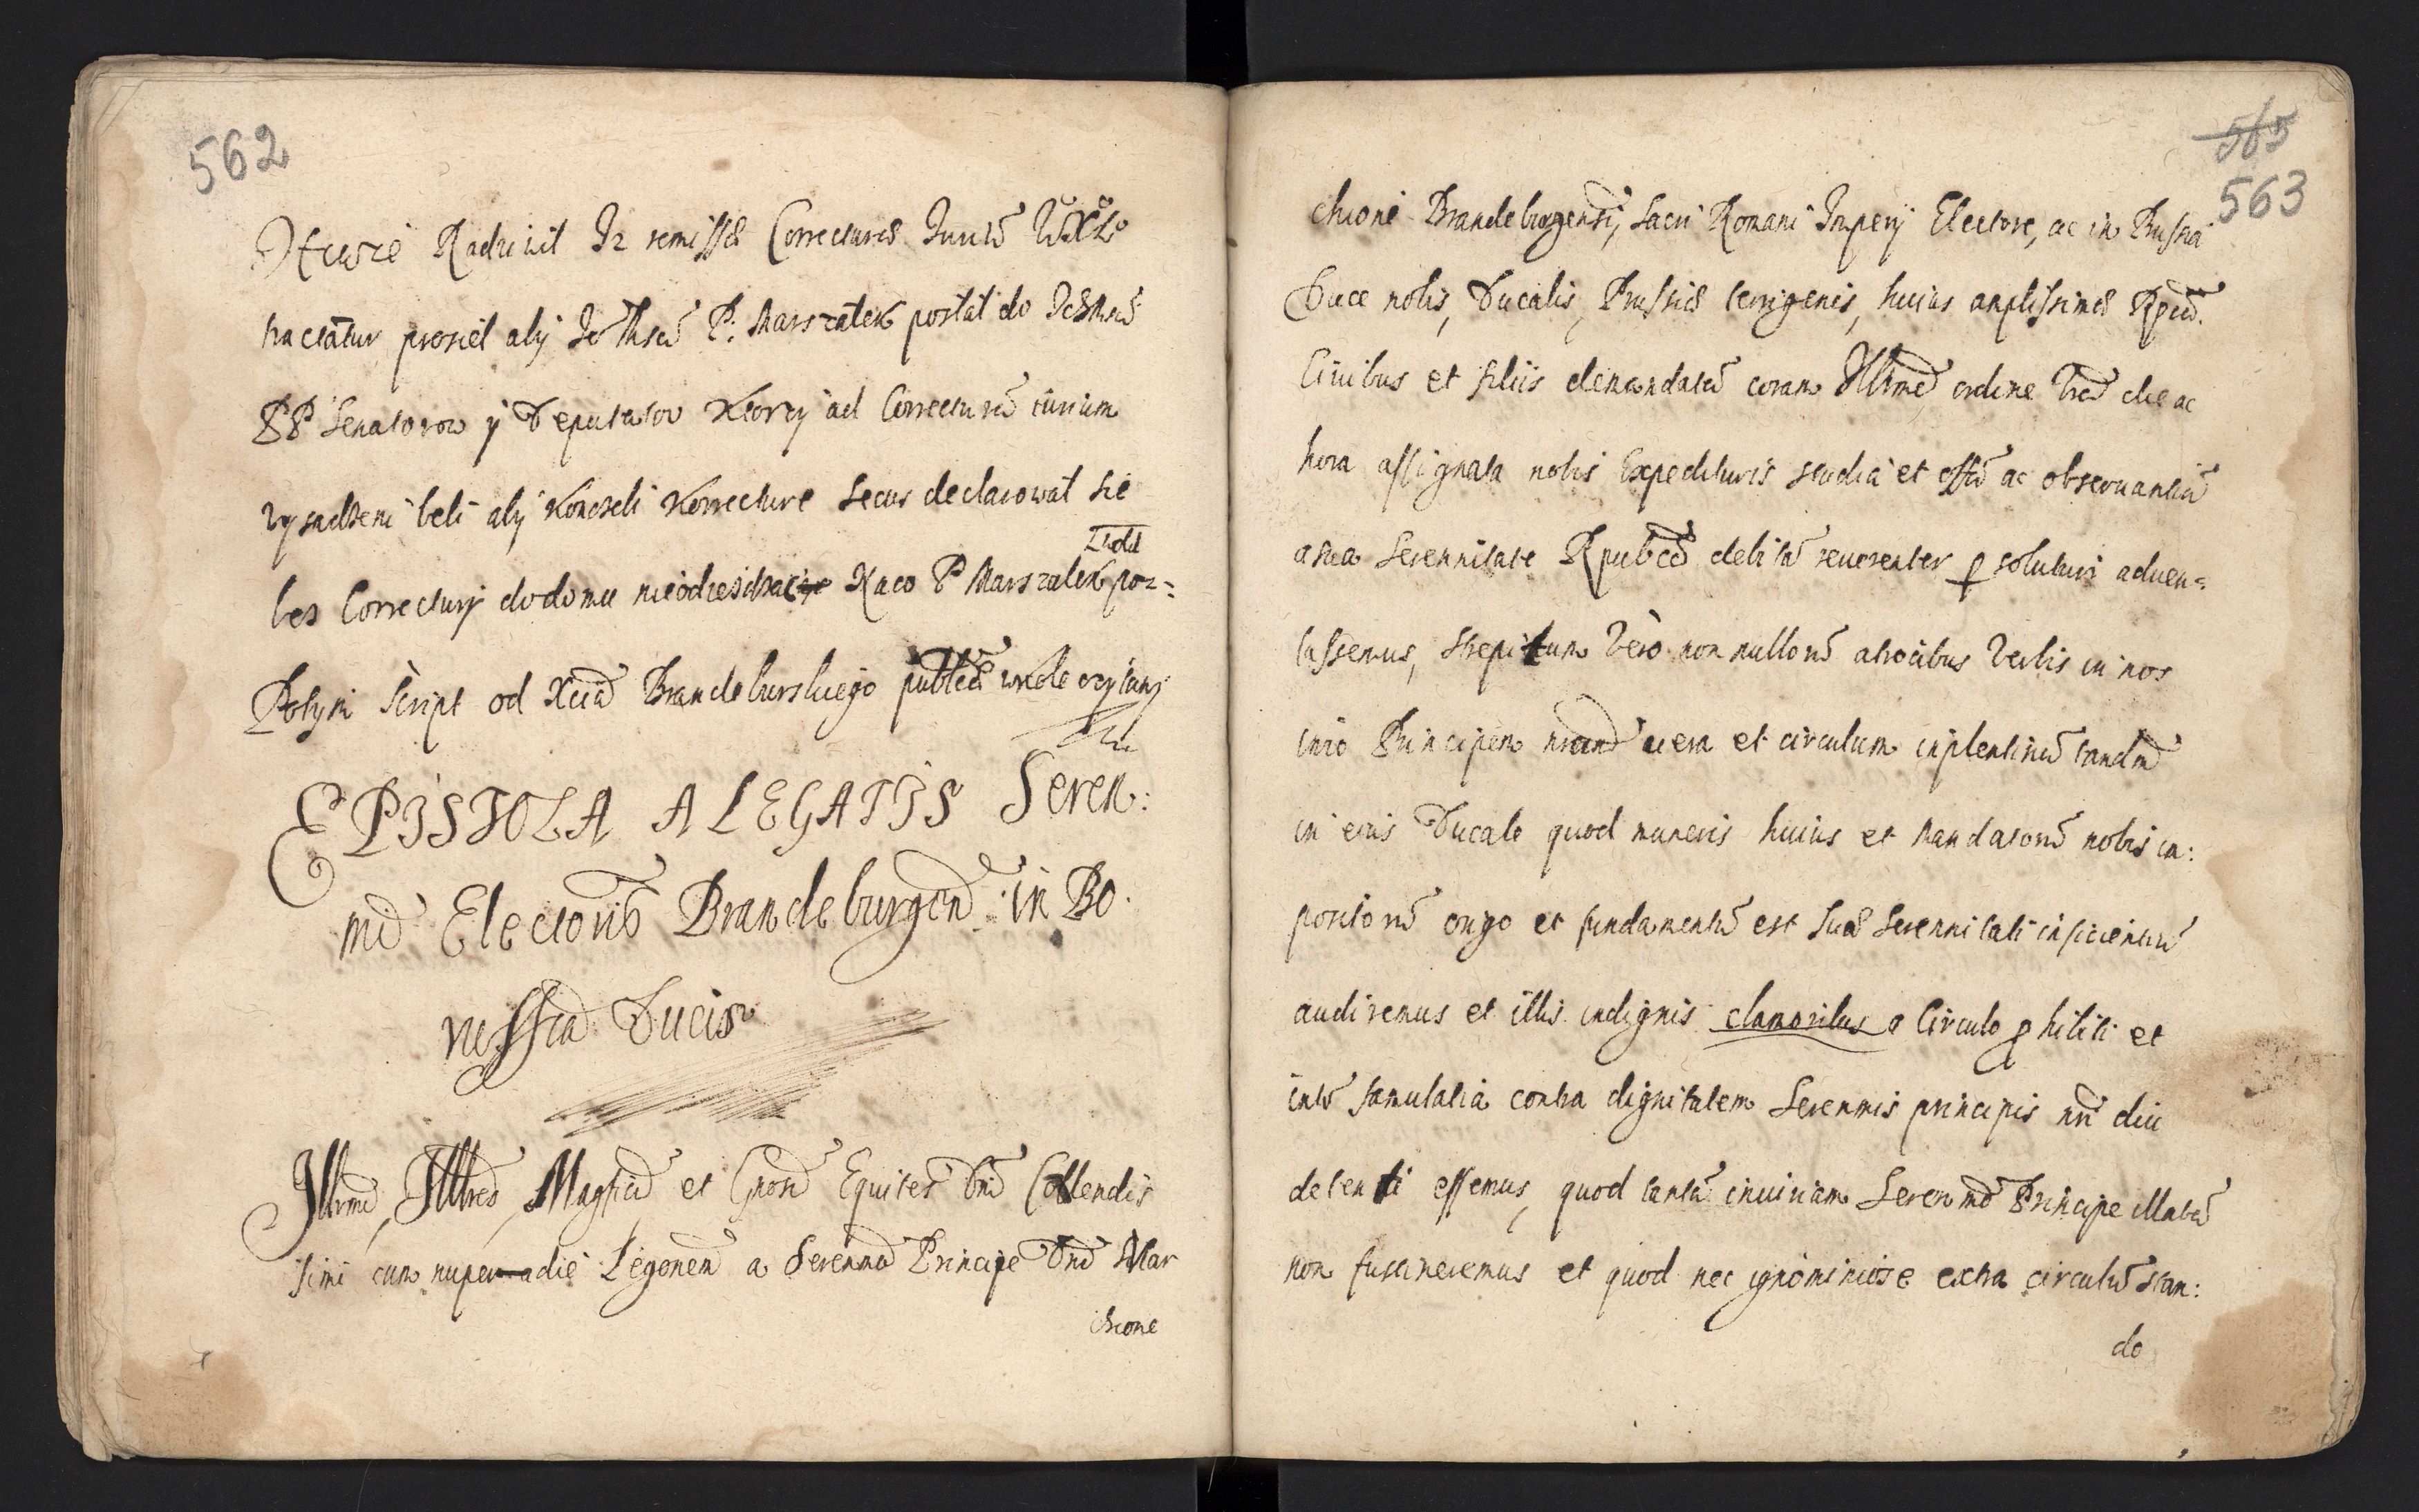 562
Radziwil Iz remisse Correcturae Iuriũ WXL
tractatur prosiel aby P. Marszalek poslal do
PP Senatorow y Deputatow ktorzy ad Correcturã iurium
wysadzeni beli aby konczeli korrecture secus declarowal sie
Zwola
bez Correctury dodomu nieodiezdzac Naco P Marszalek poz=
Potym Script od Xcia Brandeburskiego wkole czytany
EPISTOLA A LEGATIS Seren:
mi Electoris Brandeburgen in Bo.
russia Ducis
Illrmi, Illres, Magfici et Gnosi Equites Dni Collendis
simi cum nuper adie Legonem a Serenmo Principe Dno Mar
chione
565
563
chione Brandeburgensi, Sacri Romani Imperij Electore, ac in Prussia
Duce nobis, Ducalis, Prussiae terrigenis, huius amplissimae Rpub.
Civibus et filiis demandatã coram Illrmo ordine die ac
hora assignata nobis Expedituris studia et offa ac observantiã
a sua Serenitate Rpubcae debitã reverenter p soluturi adven=
tassemus, strepitum vero non nullorũ atrocibus verbis in nos
imo Principem nrum et circulum implentiũ tandẽ
in eius Ducale quod muneris huius et mandatorũ nobis im:
positorũ origo et fundamentũ est Suae Serennitati inficientiũ
audiremus et illis indignis clamoribus a Circulo p hibiti et
intũ famulatia contra dignitatem Serennis principis nri diu
detenti essemus, quod tantã iniuriam Serenmo Principe illatã
non sustineremus et quod nec ignominiose extra circulũ stan:
do